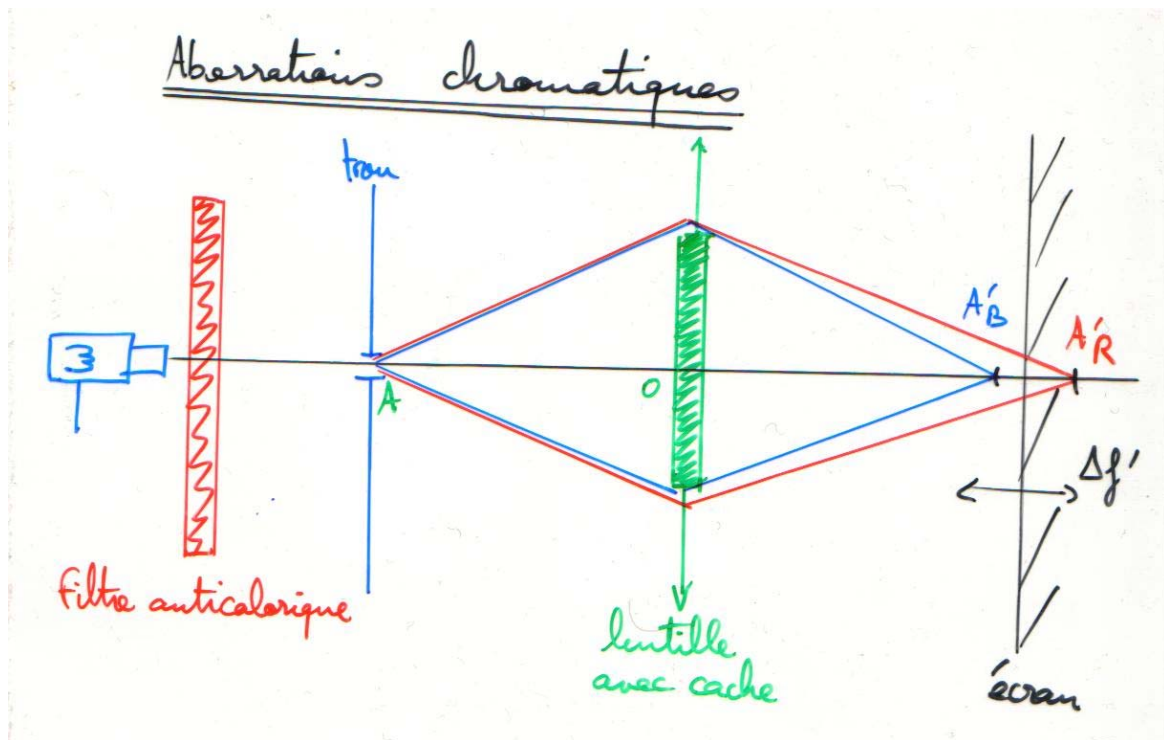 Aberrations chromatiques
trou
A'B
A'R
O
A
Δf'
filtre anticalorique
lentille
avec cache
écran